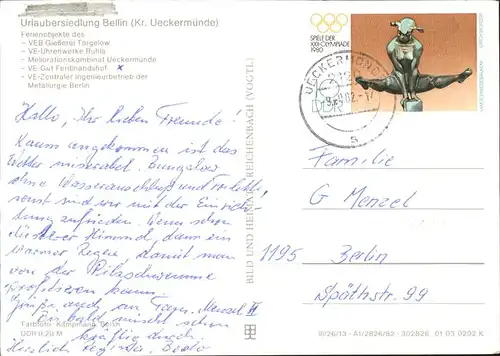 Urlaubersiedlung Bellin (Kr. Ueckermünde)
Ferienobjekte des
- VEB Gießerei Torgelow
- VE-Uhrenwerke Ruhla
- Meliorationskombinat Ueckermünde
- VE-Gut Ferdinandshof x
- VE-Zentraler Ingenieurbetrieb der
Metallurgie Berlin
Hallo, Ihr lieben Freunde!
Kaum angekommen ist das
Wetter miserabel. Bungalow
ohne Wasseranschluß und Toilette,
sonst sind wir mit der Einrich-
tung zufrieden. Wenn schon
düsterer Himmel, dann ein
warmer Regen, damit man
von der Pilzschwemme
profitieren kann.
Grüße auch an Fam. Mensel II
Ein bald
kräftig
Herzlich
Farbfoto: Kampmann, Berlin
DDR 0,20 M
BILD UND HEIMAT REICHENBACH (VOGTL)
SPIELE DER
XXII. OLYMPIADE
1980
DDR
UECKERMÜNDE
Familie
G Menzel
1195 Berlin
Späthstr. 99
III/26/13 - A1/2826/82 - 302826 01 03 0202 K